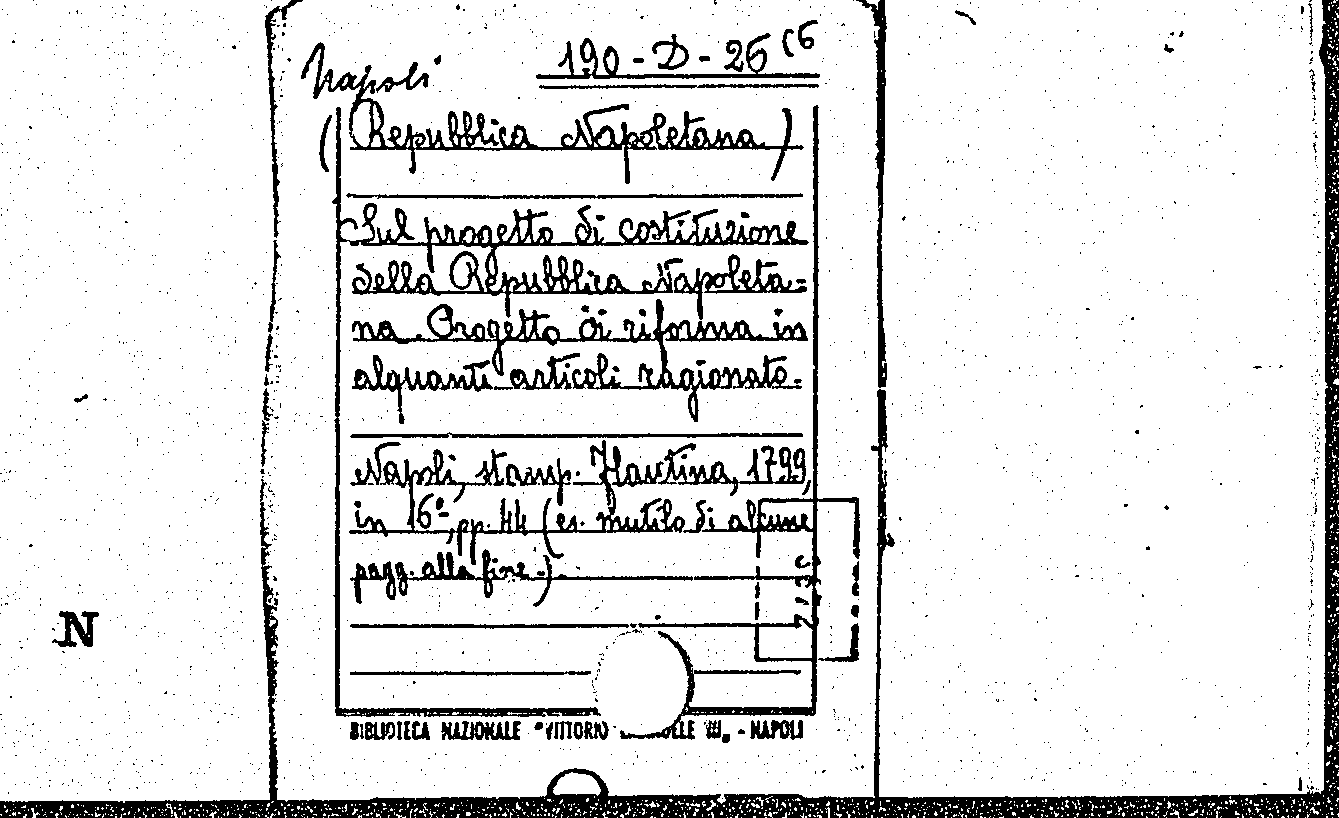 Napoli
190-D-26 (6
(Repubblica Napoletana)
Sul progetto di costituzione
della Repubblica Napoleta=
na. Progetto di riforma in
alquanti articoli ragionato.
Napoli, stamp. Flautina, 1799,
in 16º, pp. 44 (es. mutilo di alcune
pagg. alla fine.).
N
BIBLIOTECA NAZIONALE "VITTORIO III„ - NAPOLI